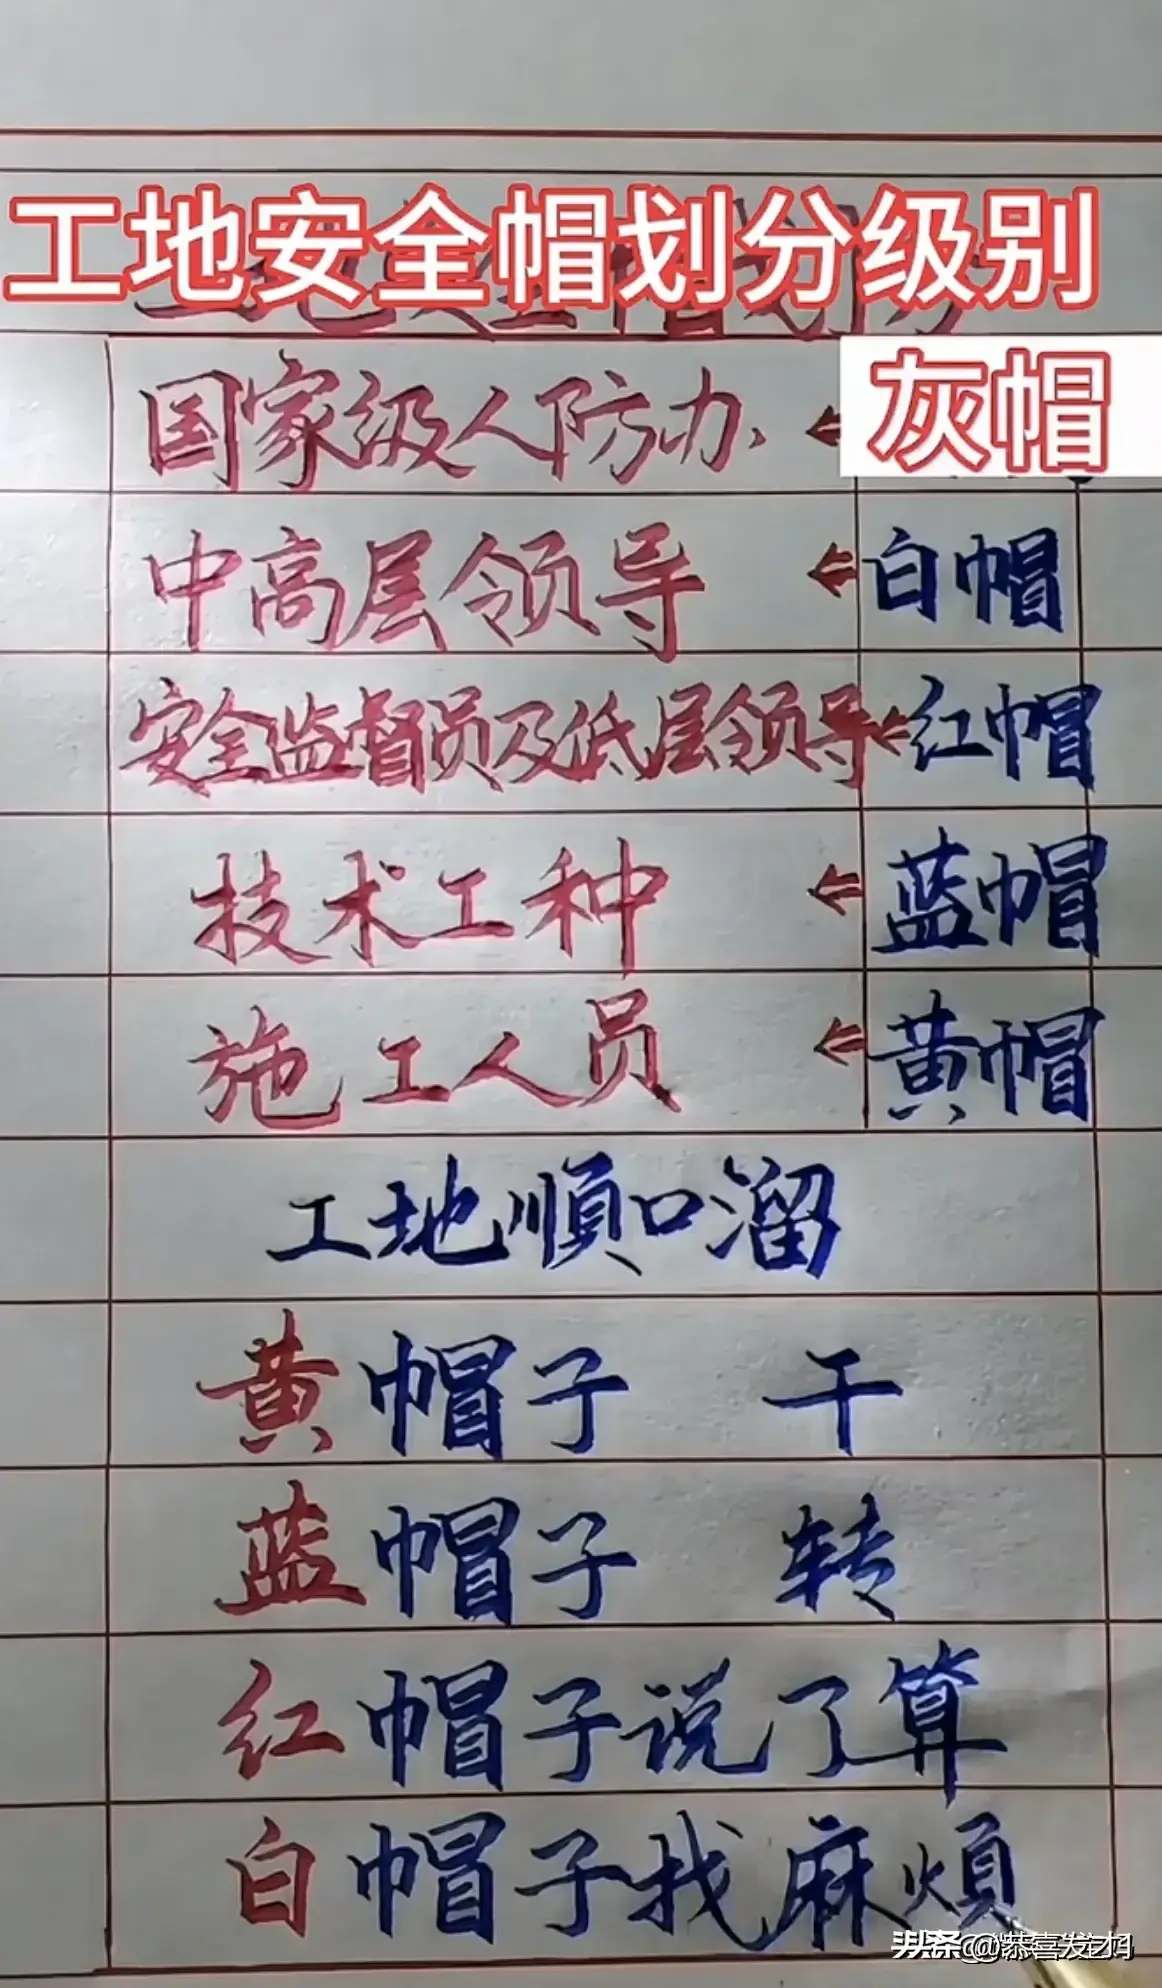 工地安全帽划分级别
国家级人防办 灰帽
中高层领导 白帽
安全监督员及低层领导 红帽
技术工种 蓝帽
施工人员 黄帽
工地顺口溜
黄帽子 干
蓝帽子 转
红帽子说了算
白帽子找麻烦
头条 @恭喜发主村